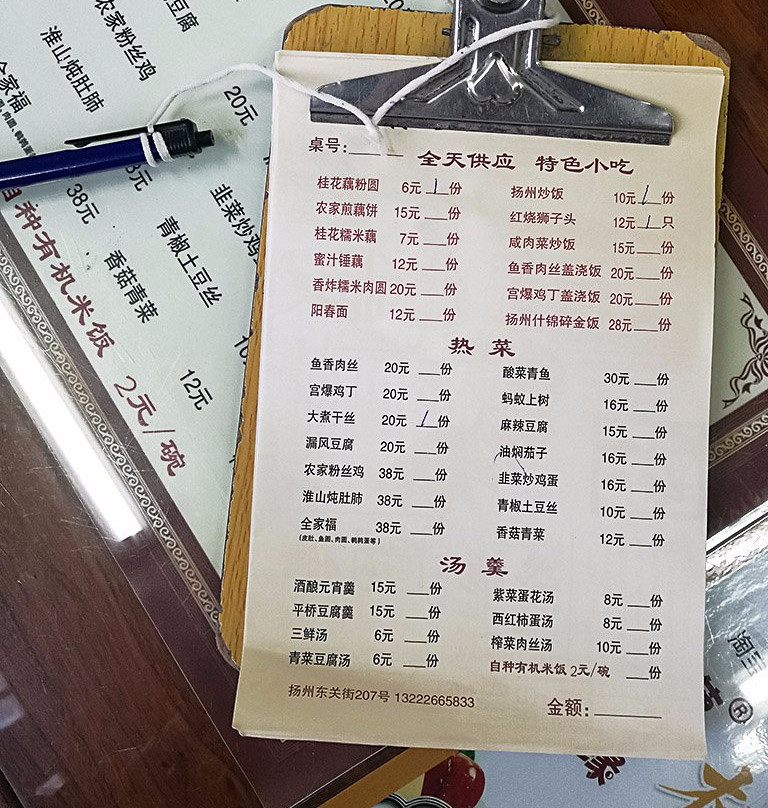 桌号:
全天供应 特色小吃
桂花藕粉圆 6元 1 份 扬州炒饭 10元 1 份
农家煎藕饼 15元 份 红烧狮子头 12元 1 只
桂花糯米藕 7元 份 咸肉菜炒饭 15元 份
蜜汁锤藕 12元 份 鱼香肉丝盖浇饭 20元 份
香炸糯米肉圆 20元 份 宫爆鸡丁盖浇饭 20元 份
阳春面 12元 份 扬州什锦碎金饭 28元 份
热菜
鱼香肉丝 20元 份 酸菜青鱼 30元 份
宫爆鸡丁 20元 份 蚂蚁上树 16元 份
大煮干丝 20元 1 份 麻辣豆腐 15元 份
漏风豆腐 20元 份 油焖茄子 16元 份
农家粉丝鸡 38元 份 韭菜炒鸡蛋 16元 份
淮山炖肚肺 38元 份 青椒土豆丝 10元 份
全家福 38元 份 香菇青菜 12元 份
(皮肚、鱼圆、肉圆、鹌鹑蛋等)
汤羹
酒酿元宵羹 15元 份 紫菜蛋花汤 8元 份
平桥豆腐羹 15元 份 西红柿蛋汤 8元 份
三鲜汤 6元 份 榨菜肉丝汤 10元 份
青菜豆腐汤 6元 份 自种有机米饭 2元/碗 份
扬州东关街207号 13222665833 金额:
豆腐
农家粉丝鸡
淮山炖肚肺
全家福
20元
38元
韭菜炒鸡
青椒土豆丝
香菇青菜
12元
自种有机米饭 2元/碗
淘三
缘
®